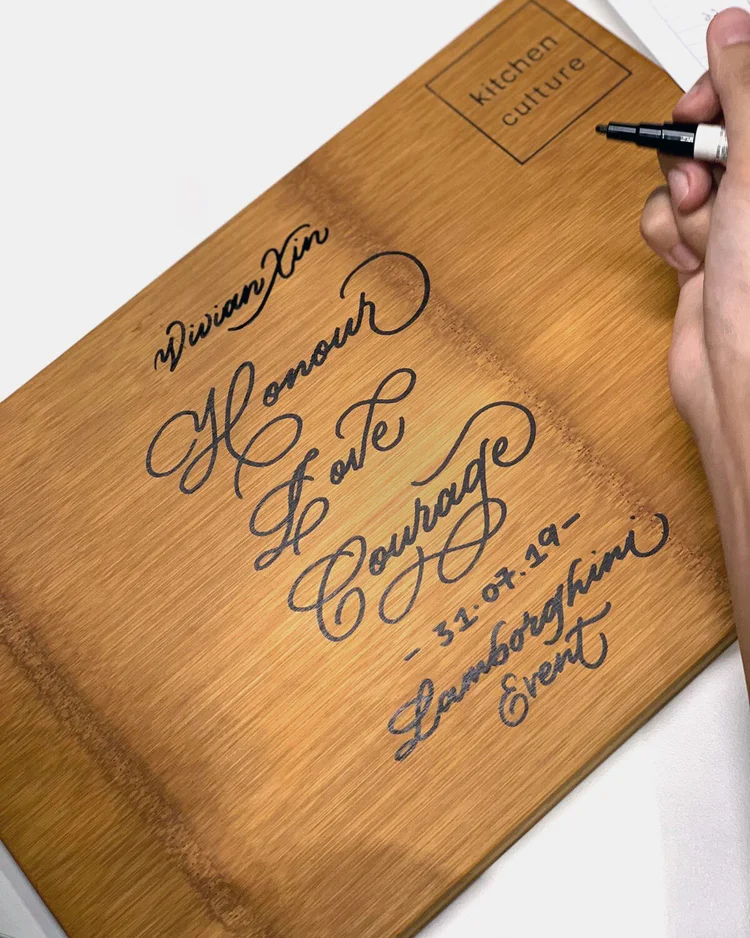 kitchen
culture
Vivian Xin
Honour
Love
Courage
- 31.07.19 -
Lamborghini
Event